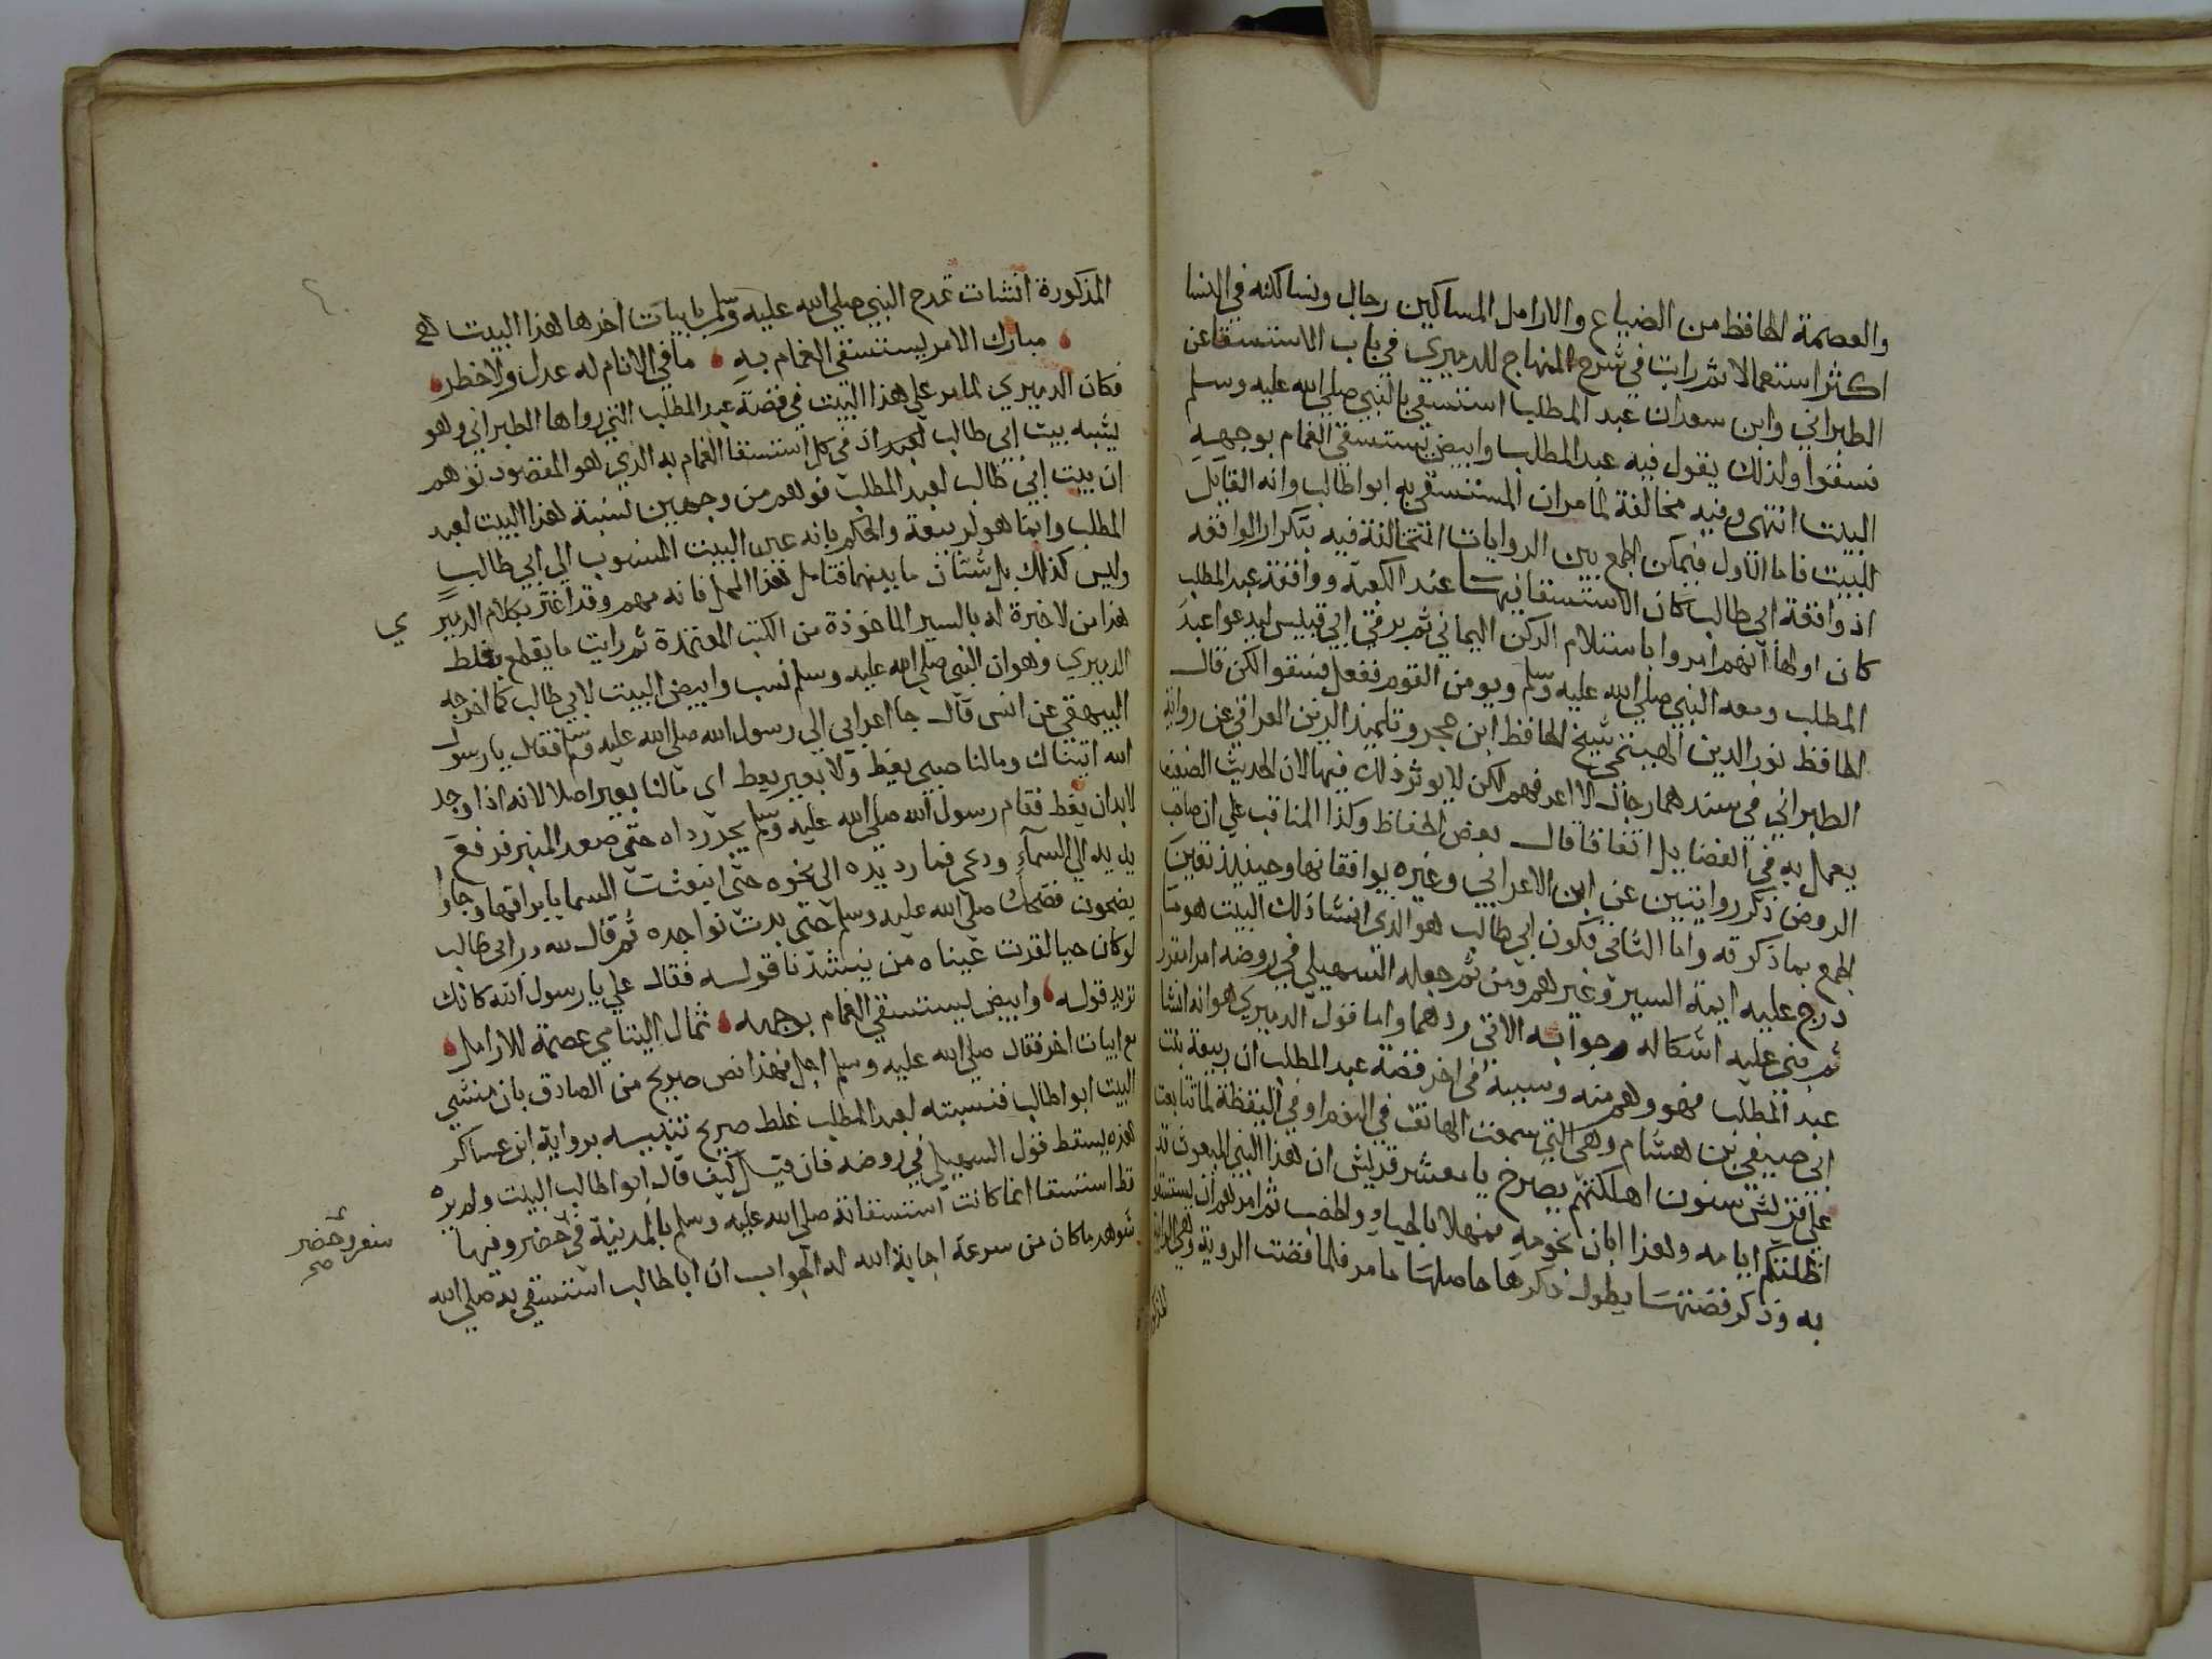 والعصمة الحافظ من الضياع والارامل المساكين رجال ونسا لكنه في النسا
اكثر استعمالا ثم رايت في شرح المنهاج للدميري في باب الاستسقا عن
الطبراني وابن سعد ان عبد المطلب استسقي بالنبي صلي الله عليه وسلم
فسقوا ولذلك يقول فيه عبد المطلب وابيض يستسقي الغمام بوجهه
البيت انتهى وفيه مخالفة لما مر ان المستسقي به ابو طالب وانه القايل
للبيت فاما الاول فيمكن الجمع بين الروايات المتخالفة فيه بتكرار الواقعه
اذ واقعة ابي طالب كان الاستسقا فيها عند الكعبة وواقعة عبد المطلب
كان اولها انهم امروا باستلام الركن اليماني ثم يرقي ابي قبيس ليدعوا عبد
المطلب ومعه النبي صلي الله عليه وسلم ويومن القوم ففعل فسقوا لكن قال
الحافظ نور الدين الهيتمي شيخ الحافظ ابن حجر وتلميذ الزين العراقي عن رواية
الطبراني في سندهما رجال لا اعرفهم لكن لا يوثر ذلك فيها لان الحديث الضعيف
يعمل به في الفضايل اتفاقا قال بعض الحفاظ وكذا المناقب علي ان صاحب
الروض ذكر روايتين عن ابن الاعرابي وغيره يوافقانها وحينيذ تعين
الجمع بما ذكرته واما الثاني فكون ابي طالب هو الذي انشا ذلك البيت هو ما
درج عليه ايمة السير وغيرهم ومن ثم جعله السهيلي في روضه امرا مقررا
ثم بني عليه اشكاله وجوابه الاتي ردهما واما قول الدميري هو انه انشا
عبد المطلب فهو وهم منه وسببه في اخر قصة عبد المطلب ان ربيعة بنت
ابي صيفي بن هشام وهي التي سمعت الهاتف في النوم او في اليقظة لما تتابعت
علي قريش سنون اهلكتهم يصرخ يا معشر قريش ان هذا النبي المبعوث قد
اظلتكم ايامه وهذا ابان نجومه فحيهلا بالحيا والخصب ثم امرهم ان يستسقوا
به وذكر قصتها يطول ذكرها حاصلها ما مر فلما قضت الروية وهي الرواية
المذكورة
المذكورة انشات تمدح النبي صلي الله عليه وسلم بابيات اخرها هذا البيت هو
مبارك الامر يستسقي الغمام به ما في الانام له عدل ولا خطر
فكان الدميري لما مر علي هذا البيت في قصة عبد المطلب التي رواها الطبراني وهو
يشبه بيت ابي طالب اذ في كل استسقا الغمام به الذي هو المقصود توهم
ان بيت ابي طالب لعبد المطلب فوهم من وجهين نسبة هذا البيت لعبد
المطلب وانما هو لربيعة والحكم بانه عين البيت المنسوب الي ابي طالب
وليس كذلك بل شتان ما بينهما فتامل هذا المحل فانه مهم وقد اغتر بكلام الدمير
ي
هذا من لا خبرة له بالسير الماخوذة من الكتب المعتمدة ثم رايت ما يقطع بغلط
الدميري وهو ان النبي صلي الله عليه وسلم نسب وابيض البيت لابي طالب كما اخرجه
البيهقي عن انس قال جا اعرابي الي رسول الله صلي الله عليه وسلم فقال يا رسول
الله اتيناك ومالنا صبي يغط ولا بعير يعط اي مالنا بعير اصلا لانه اذا وجد
لابد ان يغط فقام رسول الله صلي الله عليه وسلم يجر رداه حتي صعد المنبر فرفع
يديه الي السماء ودعي فما رد يده الي نحوه حتي انبعثت السما بابراقها وجاوا
يضجون فضحك صلي الله عليه وسلم حتي بدت نواجده ثم قال لله در ابي طالب
لو كان حيا لقرت عيناه من ينشدنا قوله فقال علي يا رسول الله كانك
تريد قوله وابيض يستسقي الغمام بوجهه ثمال اليتامي عصمة للارامل
مع ابيات اخر فقال صلي الله عليه وسلم اجل فهذا نص صريح من الصادق بان منشي
البيت ابو طالب فنسبته لعبد المطلب غلط صريح تنبيه برواية ابن عساكر
هذه يسقط قول السهيلي في روضه فان قيل كيف قال ابو طالب البيت ولم يره
قط استسقا انما كانت استسقاته صلي الله عليه وسلم بالمدينة في حضر وفيها
سفر وحضر
صح
شوهد ما كان من سرعة اجابة الله له الجواب ان ابا طالب استسقي به صلي الله